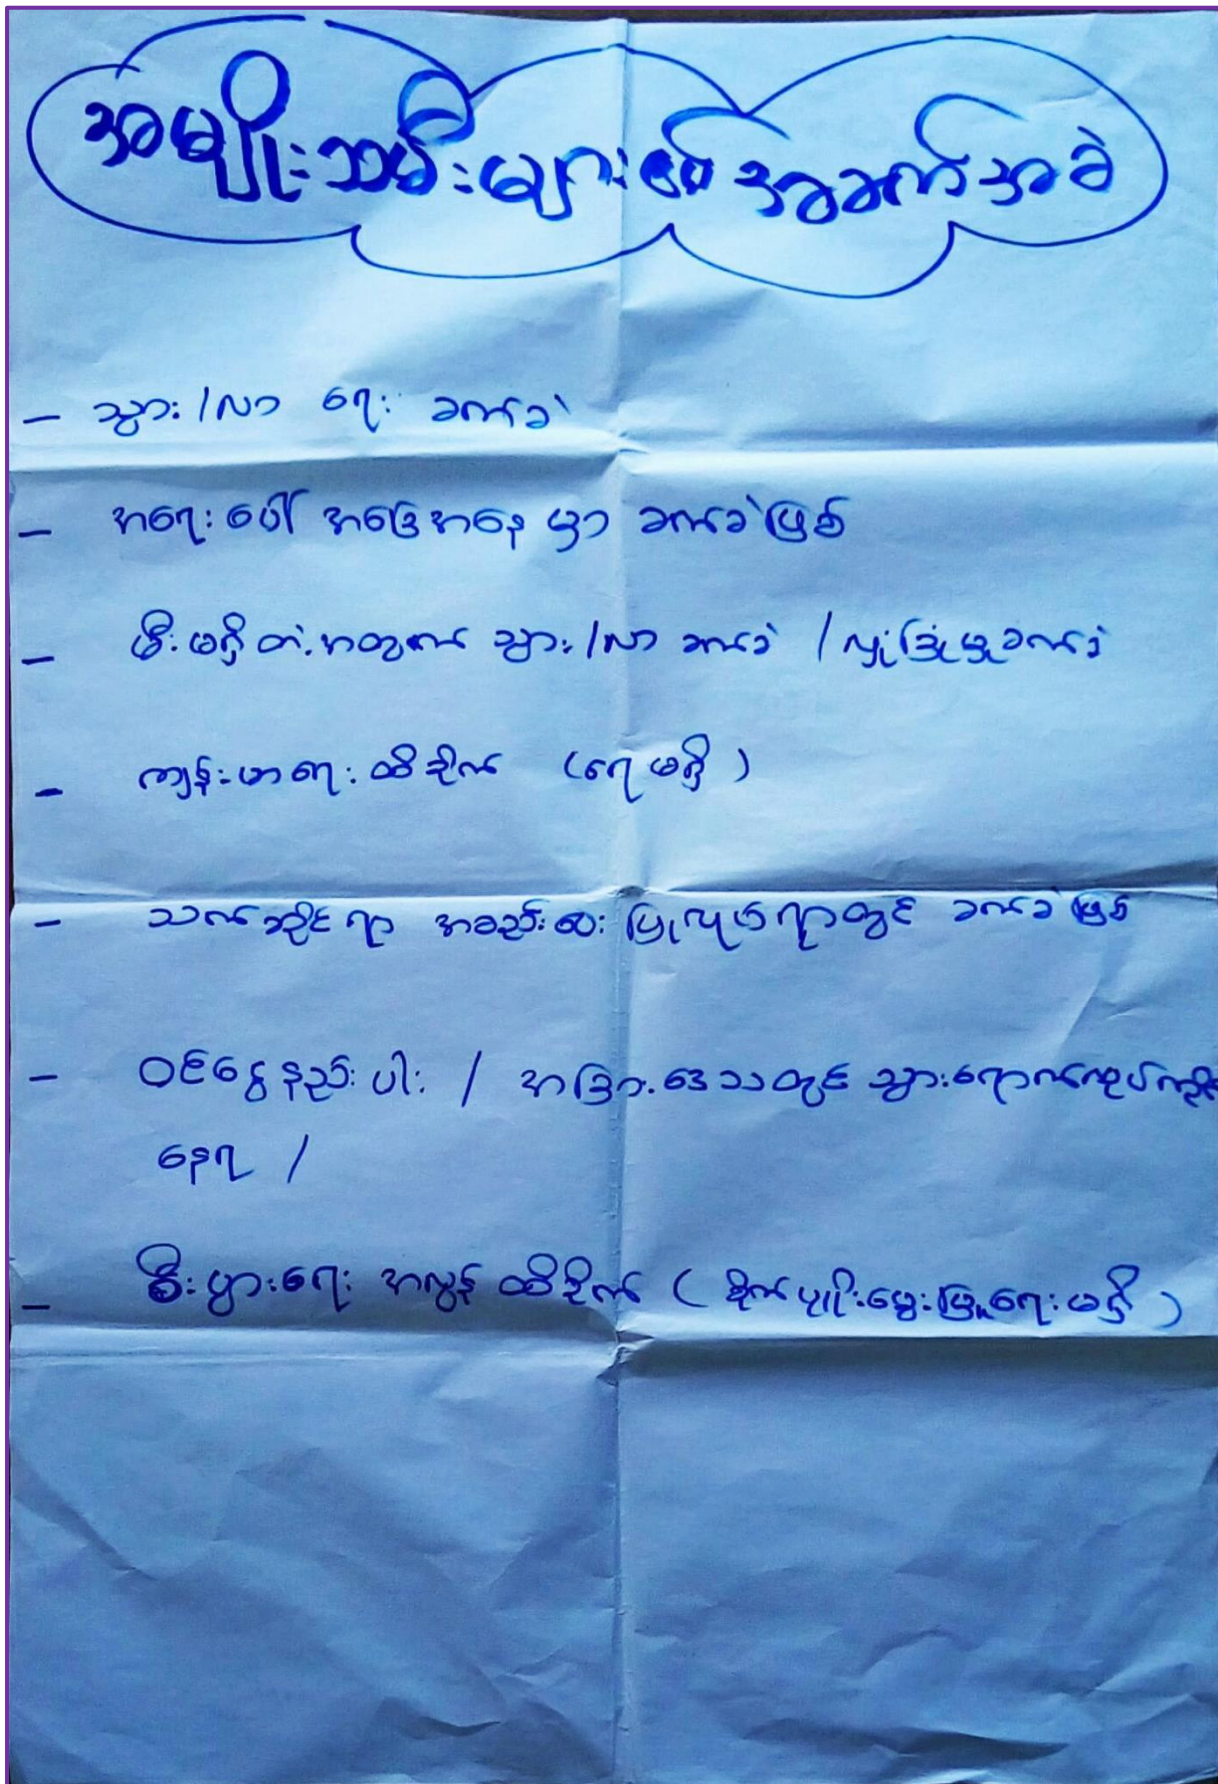 အမျိုးသမီးများ၏ အခက်အခဲ
- သွား/လာ ရေး ခက်ခဲ
- အရေးပေါ် အခြေအနေ မှာ ခက်ခဲဖြစ်
- မီးမရှိတဲ့အတွက် သွား/လာ ခက်ခဲ / လှုံခြုံမှုခက်ခဲ
- ကျန်းမာရေး ထိခိုက် (ရေမရှိ)
- သက်ဆိုင်ရာ အစည်းဝေး ပြုလုပ်ရာတွင် ခက်ခဲဖြစ်
- ဝင်ငွေနည်းပါး / အခြားဒေသတွင် သွားရောက်လုပ်ကိုင်
နေရ /
- စီးပွားရေး အလွန် ထိခိုက် (စိုက်ပျိုးမွေးမြူရေးမရှိ)